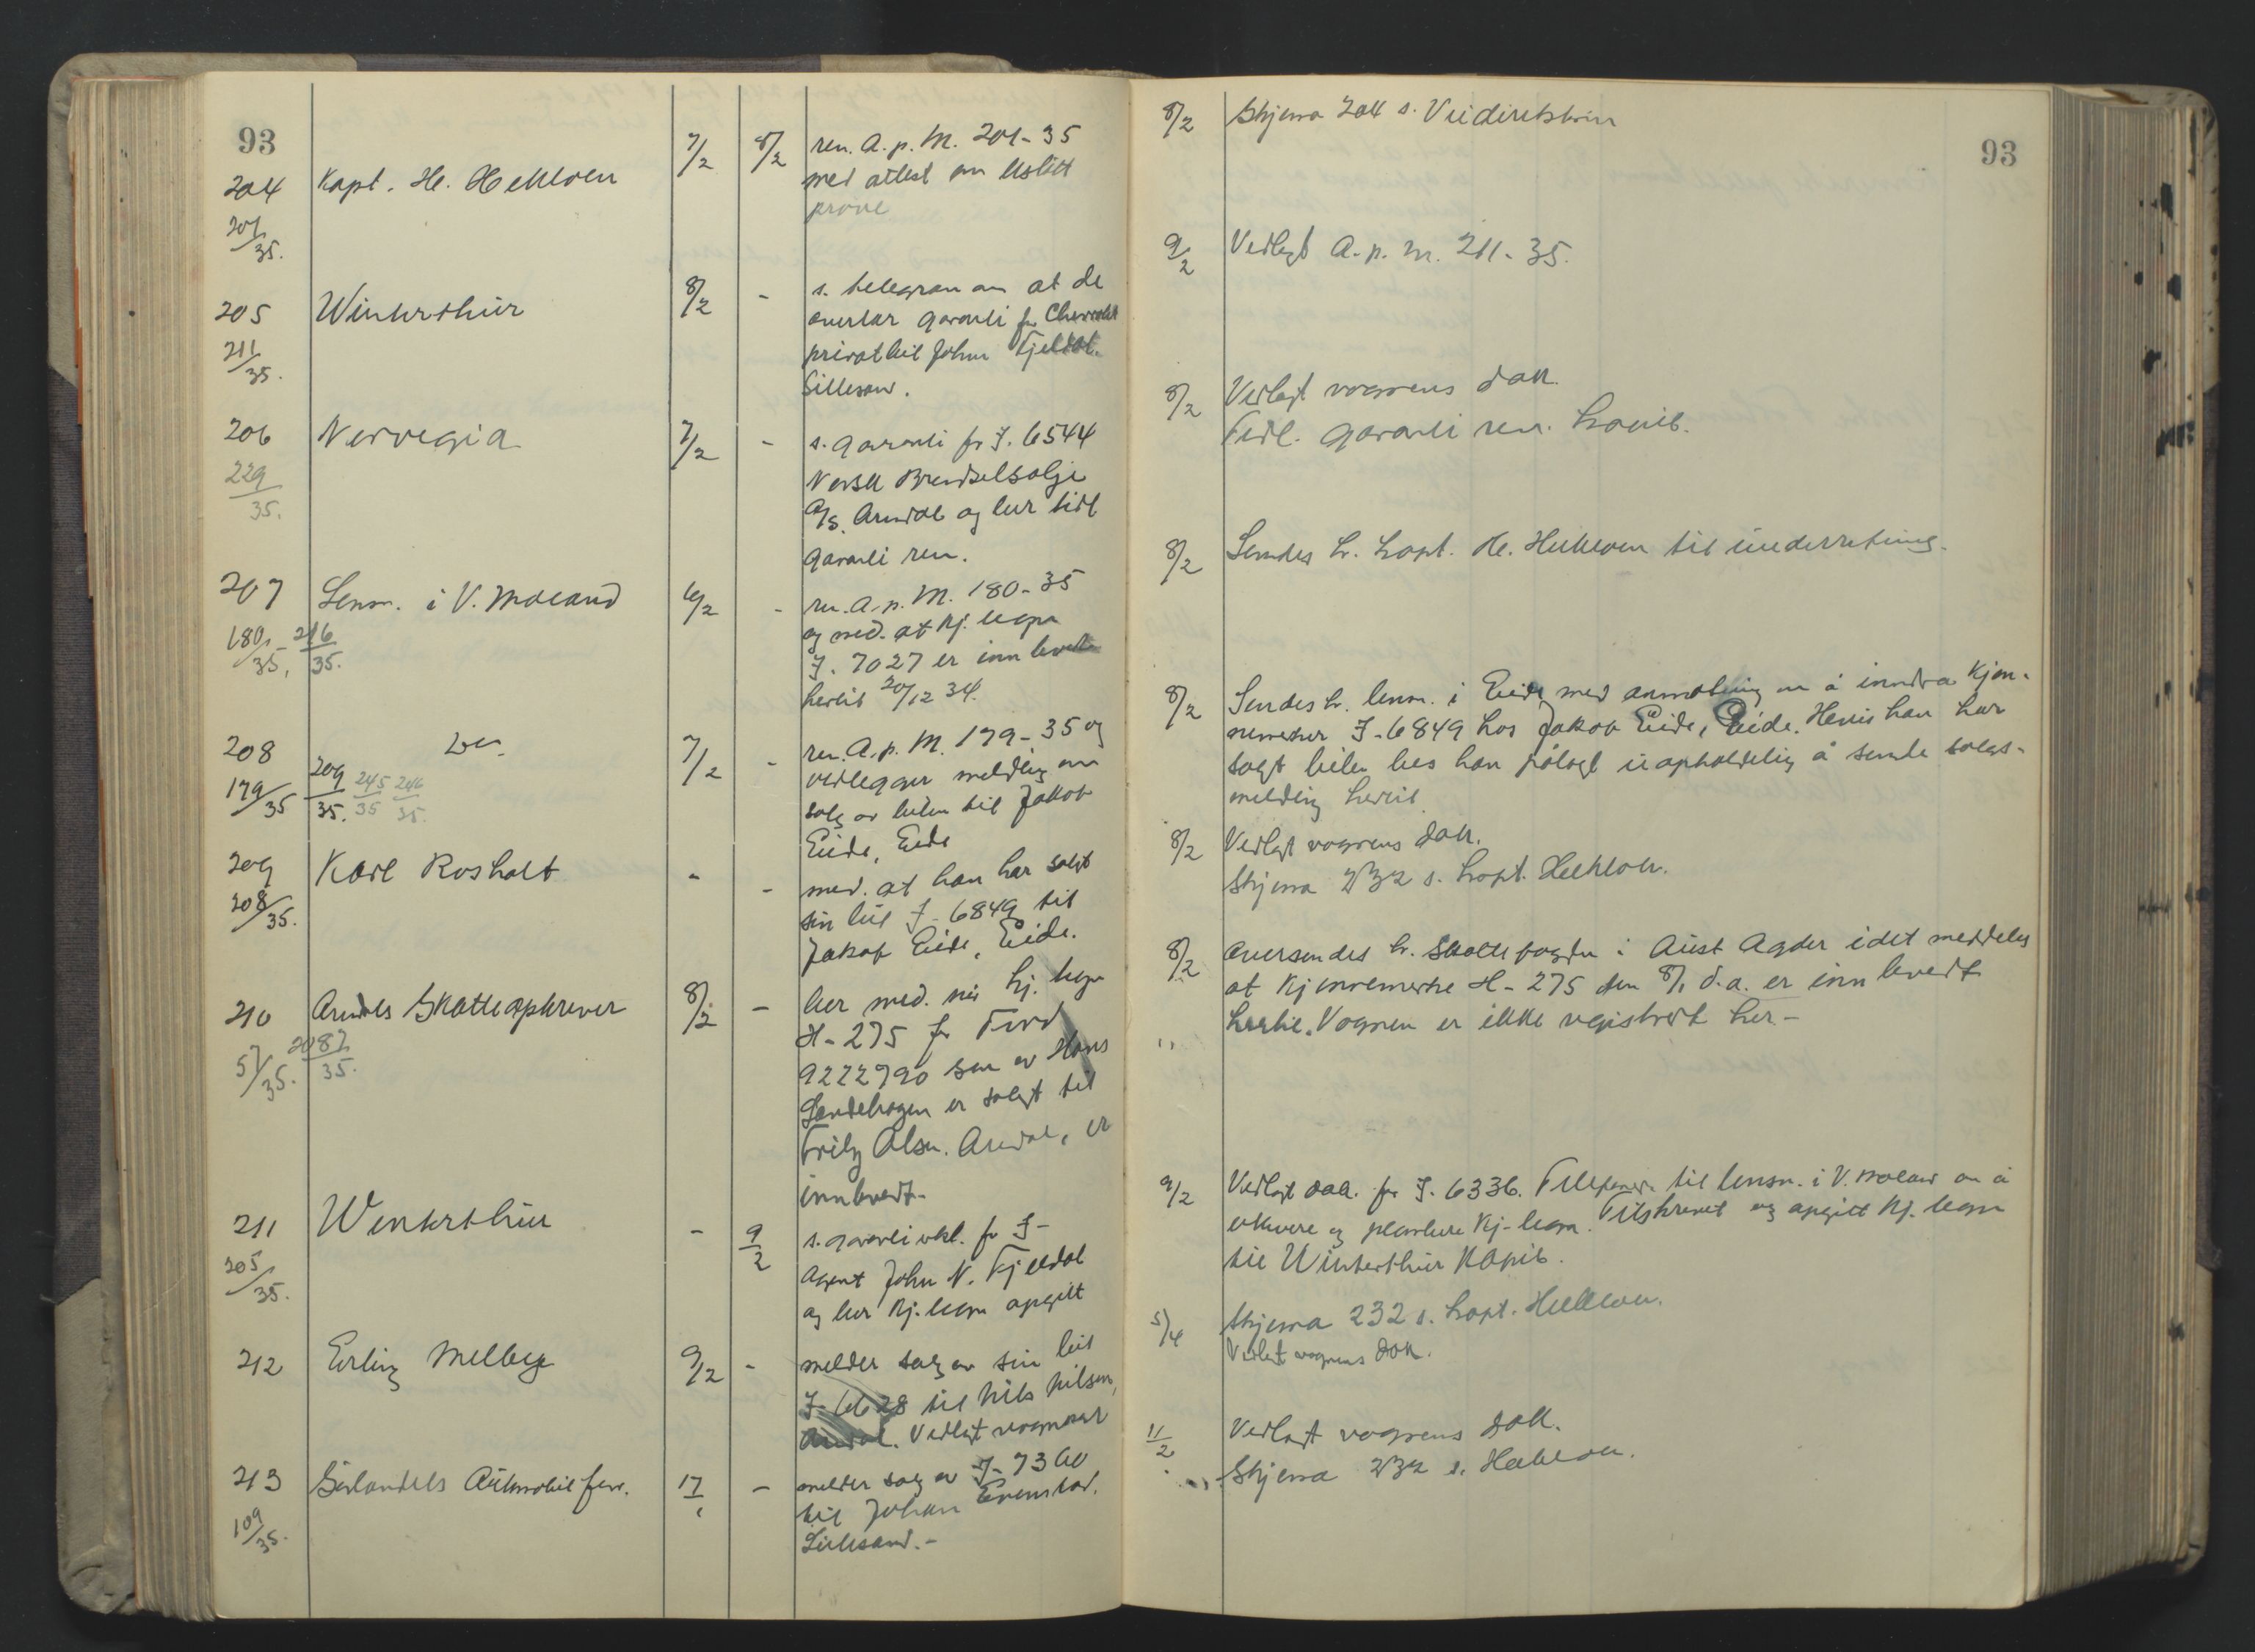 93
204 Kapt. H. Hekloen 7/2 8/2 ren. A.p.M. 201-35
201/35. med attest om
prøve
205 Winterthur 8/2 - s. telegram om at de
211/35. overtar garanti for Chevrolet
privatbil John Fjeldal.
Lillesand.
206 Norvegia 7/2 - s. garanti for I. 6544
229/35. Norsk Brendselsolje
A/S. Arendal og ber tidl
garanti ren.
207 Lensm. i V. Moland 6/2 - ren. A.p.M. 180-35
180/35, 216/35. og med. at kj. tegn
I. 7027 er innlevert
hertil 20/12 34.
208 Do. 7/2 - ren. A.p.M. 179-35 og
179/35 209/35. 245/35 246/35. vedlegger melding om
salg av bilen til Jakob
Eide, Eide
209 Karl Rosholt - - med. at han har solgt
208/35. sin bil I-6849 til
Jakob Eide, Eide.
210 Arendals Skatteopkrever 8/2 - ber med. når kj. tegn
57/35. 2087/35. H-275 for Ford
9222790 som av Hans
Sandehagen er solgt til
Fritz Olsen. Arendal, er
innlevert.
211 Winterthur - 9/2 s. garanti erkl. for I-
205/35. Agent John N. Fjeldal
og ber kj. tegn opgitt
212 Erling Melberg 9/2 - melder salg av sin bil
I-6628 til Nils Nilsen,
Arendal. Vedlagt vognkort
213 Sørlandets Automobilforr. 17/1 - melder salg av I-7360
109/35. til Johan Evenstad.
Lillesand.-
93
8/2 Skjema 204 s. Veidirektøren
9/2 Vedlagt A.p.M. 211-35.
8/2 Vedlagt vognens dok.
Tidl. garanti ren.
8/2 Sendes hr. kapt. H. Hekloen til underretning.
8/2 Sendes hr. lensm. i Eide med anmodning om å inndra kjen-
nemerker I-6849 hos Jakob Eide, Eide. Hvis han har
solgt bilen bes han pålagt uopholdelig å sende salgs-
melding hertil.
8/2 Vedlagt vognens dok.
Skjema 232 s. kapt. Hekloen.
8/2 Oversendes hr. Skattefogden i Aust Agder idet meddeles
at kjennemerke H-275 den 8/1 d.a. er innlevert
hertil. Vognen er ikke registrert her.-
9/2 Vedlagt dok. for I. 6336. Telefonert til lensm. i V. Moland om å
utlevere og plombere kj-tegn. Tilskrevet og opgitt kj. tegn
til Winterthur
5/4 Skjema 232 s. kapt. Hekloen.
Vedlagt vognens dok.
11/2 Vedlagt vognens dok.
Skjema 232 s. Hekloen.